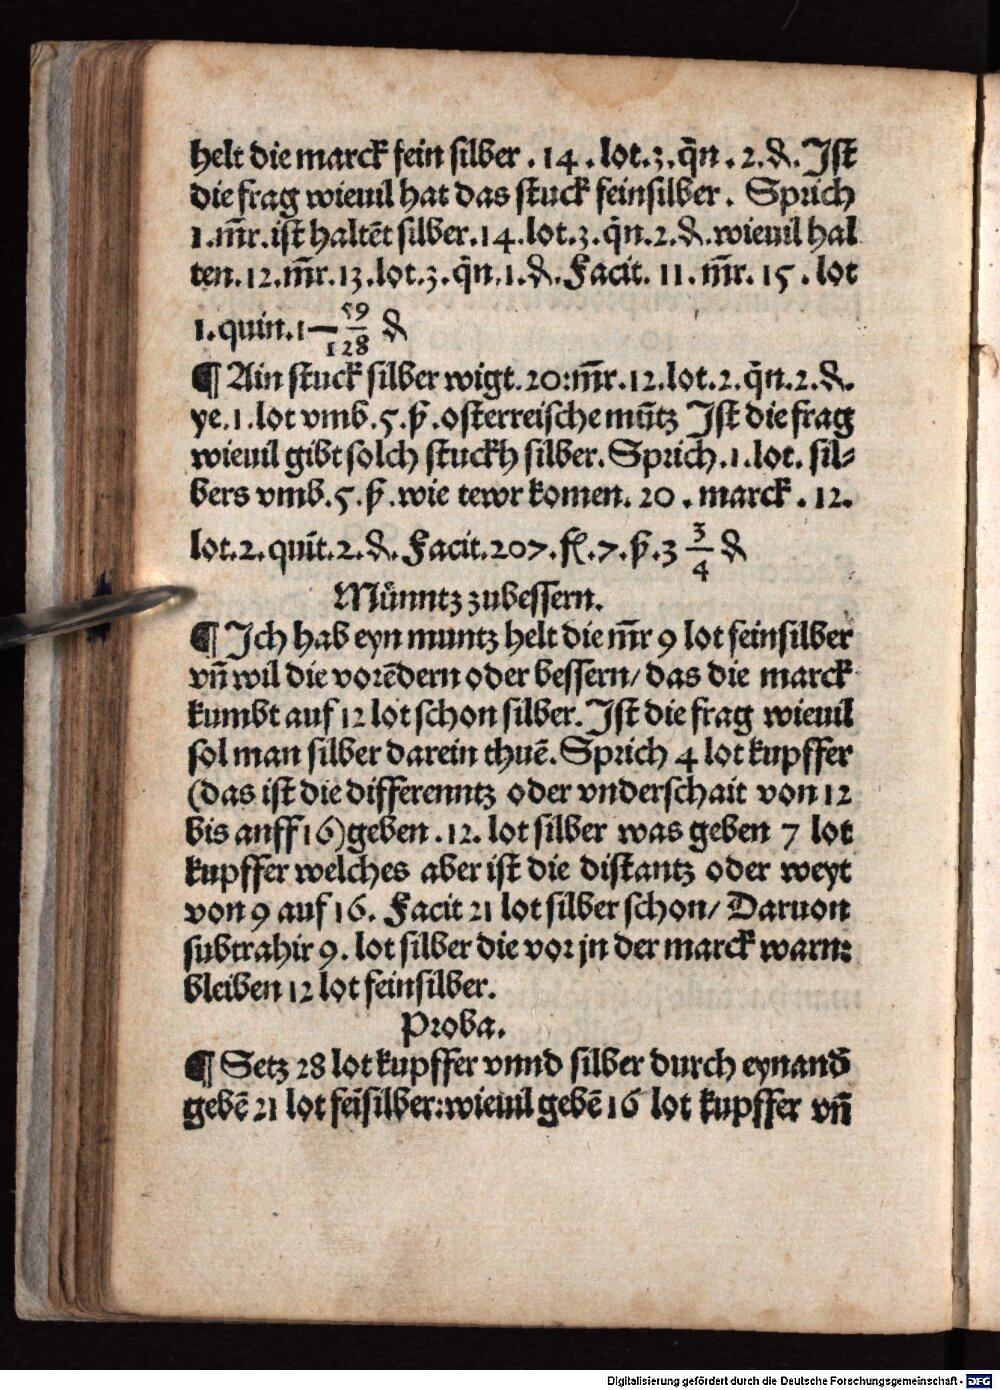 helt die marck fein silber . 14 . lot.3.q̄n . 2.₰. Jst
die frag wieuil hat das stuck feinsilber . Sprich
1.m̄r.ist haltēt silber.14.lot.3.q̄n.2.₰.wieuil hal
ten.12.m̄r.13.lot.3.q̄n.1.₰.Facit. 11.m̄r. 15 . lot
1.quin.1— 59/128 ₰
¶ Ain stuck silber wigt.20:m̄r.12.lot.2.q̄n.2.₰.
ye.1.lot vmb.5.p̄.osterreische mūtz Jst die frag
wieuil gibt solch stuckh silber. Sprich.1.lot. sil⸗
bers vmb.5.p̄.wie tewr komen. 20 . marck . 12.
lot.2.quīt.2.₰.Facit.207.fl.7.p̄.3 3/4 ₰
Müntz zubessern.
¶ Jch hab eyn muntz helt die m̄r 9 lot feinsilber
vn̄ wil die vorēdern oder bessern/ das die marck
kumbt auf 12 lot schon silber. Jst die frag wieuil
sol man silber darein thuē. Sprich 4 lot kupffer
(das ist die differenntz oder vnderschait von 12
bis anff 16) geben .12. lot silber was geben 7 lot
kupffer welches aber ist die distantz oder weyt
von 9 auf 16. Facit 21 lot silber schon/ Daruon
subtrahir 9. lot silber die vor jn der marck warn:
bleiben 12 lot feinsilber.
Proba.
¶ Setz 28 lot kupffer vnnd silber durch eynand̄
gebē 21 lot feīsilber:wieuil gebē 16 lot kupffer vn̄
Digitalisierung gefördert durch die Deutsche Forschungsgemeinschaft - DFG